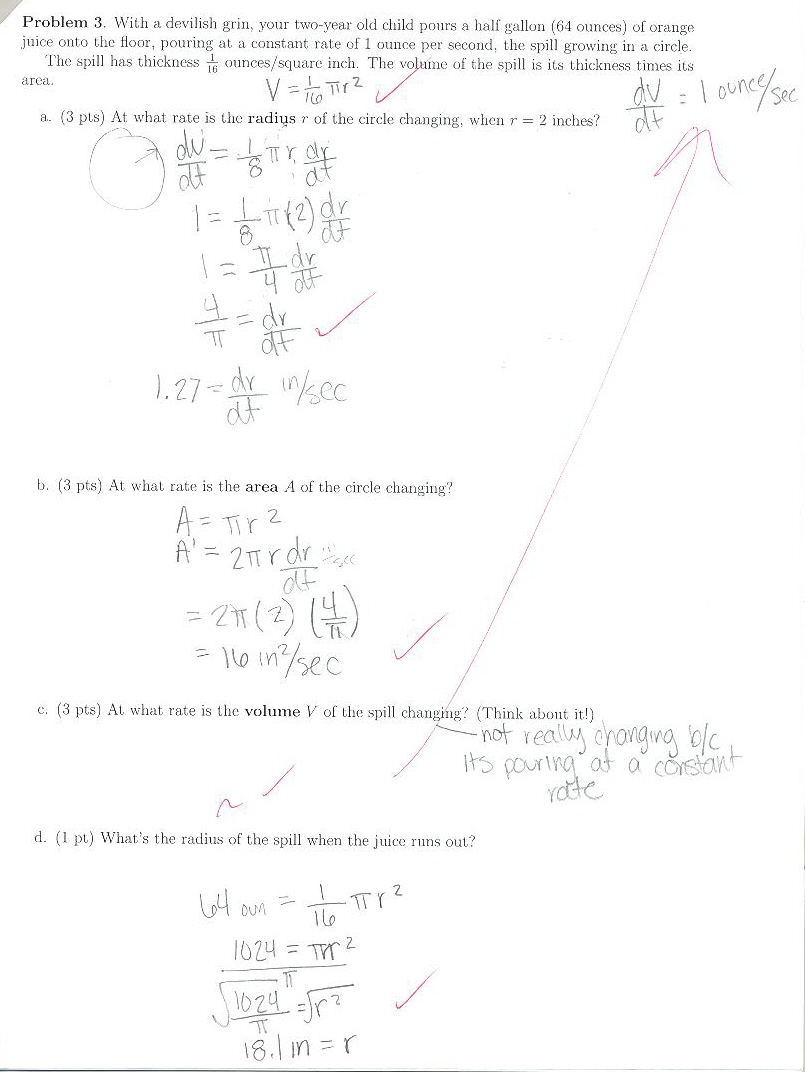 Problem 3. With a devilish grin, your two-year old child pours a half gallon (64 ounces) of orange
juice onto the floor, pouring at a constant rate of 1 ounce per second, the spill growing in a circle.
The spill has thickness 1/16 ounces/square inch. The volume of the spill is its thickness times its
area.
V = 1/16 πr² ✓
dV/dt = 1 ounce/sec
a. (3 pts) At what rate is the radius r of the circle changing, when r = 2 inches?
dV/dt = 1/8 π r dr/dt
1 = 1/8 π(2) dr/dt
1 = π/4 dr/dt
4/π = dr/dt ✓
1.27 = dr/dt in/sec
b. (3 pts) At what rate is the area A of the circle changing?
A = πr²
A' = 2πr dr/dt
= 2π(2)(4/π)
= 16 in²/sec ✓
c. (3 pts) At what rate is the volume V of the spill changing? (Think about it!)
not really changing b/c
its pouring at a constant
rate
~ ✓
d. (1 pt) What's the radius of the spill when the juice runs out?
64 oun = 1/16 πr²
1024 = πr²
π
√1024/π = √r² ✓
18.1 in = r